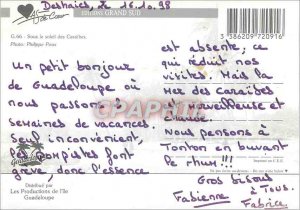 Deshaies, le 16.10.98
EDITIONS GRAND SUD
G.66 - Sous le soleil des Caraïbes.
Photo: Philippe Poux
3 386209 720916
Un petit bonjour
de Guadeloupe où
nous passons 2
semaines de vacances.
Seul inconvénient,
pompistes font
grève, donc l'essence
est absente; ce
qui réduit nos
visites. Mais la
Mer des Caraïbes
merveilleuse et
chaude.
Nous pensons à
Tonton en buvant
le rhum!!!
Gros bisous
à Tous.
Fabienne
Fabrice
Distribué par
Les Productions de l'Ile
Guadeloupe